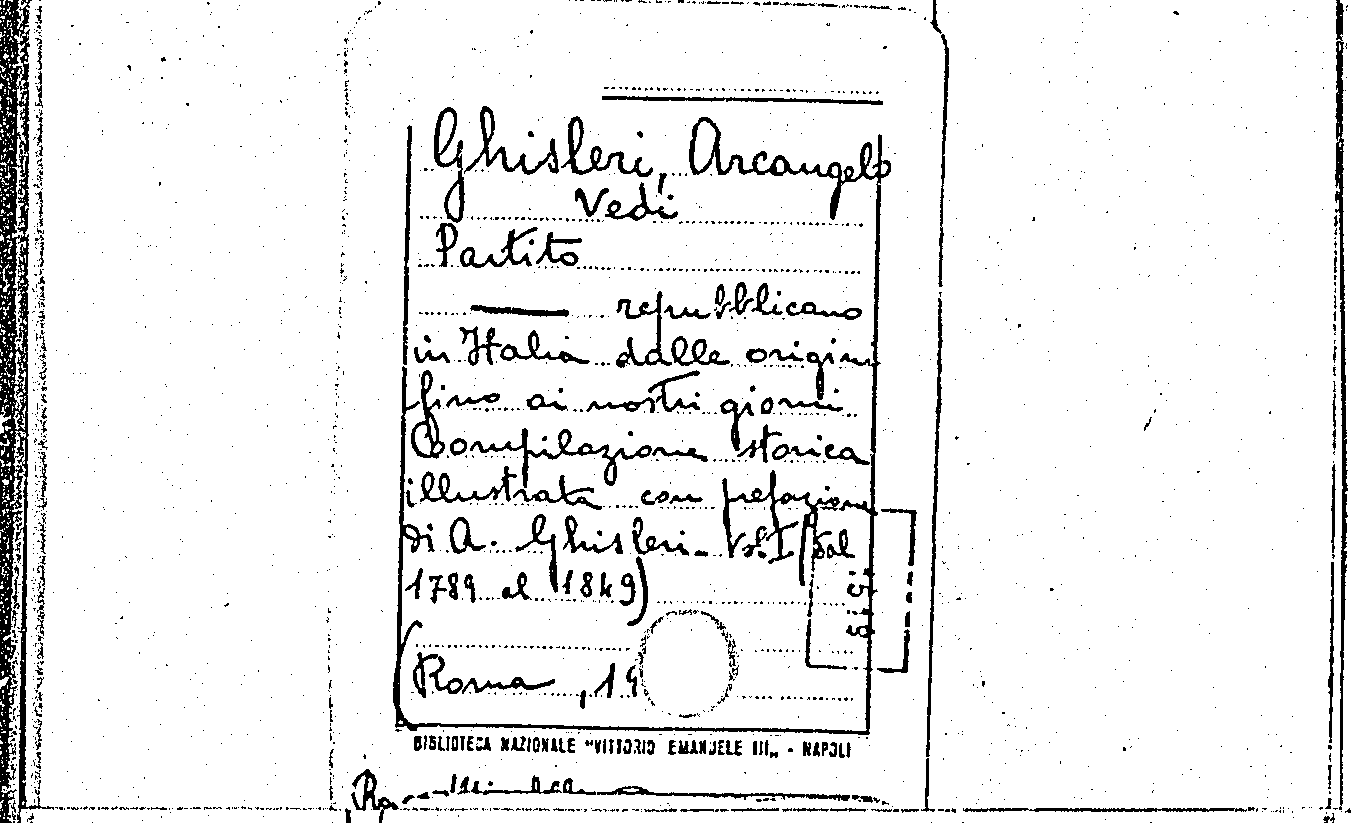 Ghisleri, Arcangelo
Vedi
Partito
—— repubblicano
in Italia dalle origini
fino ai nostri giorni
Compilazione storica
illustrata con prefazione
di A. Ghisleri. Vol. I (dal
1789 al 1849)
(Roma, 19
BIBLIOTECA NAZIONALE "VITTORIO EMANUELE III„ - NAPOLI